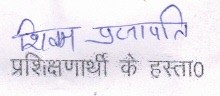 शिवम प्रजापति
प्रशिक्षणार्थी के हस्ता०